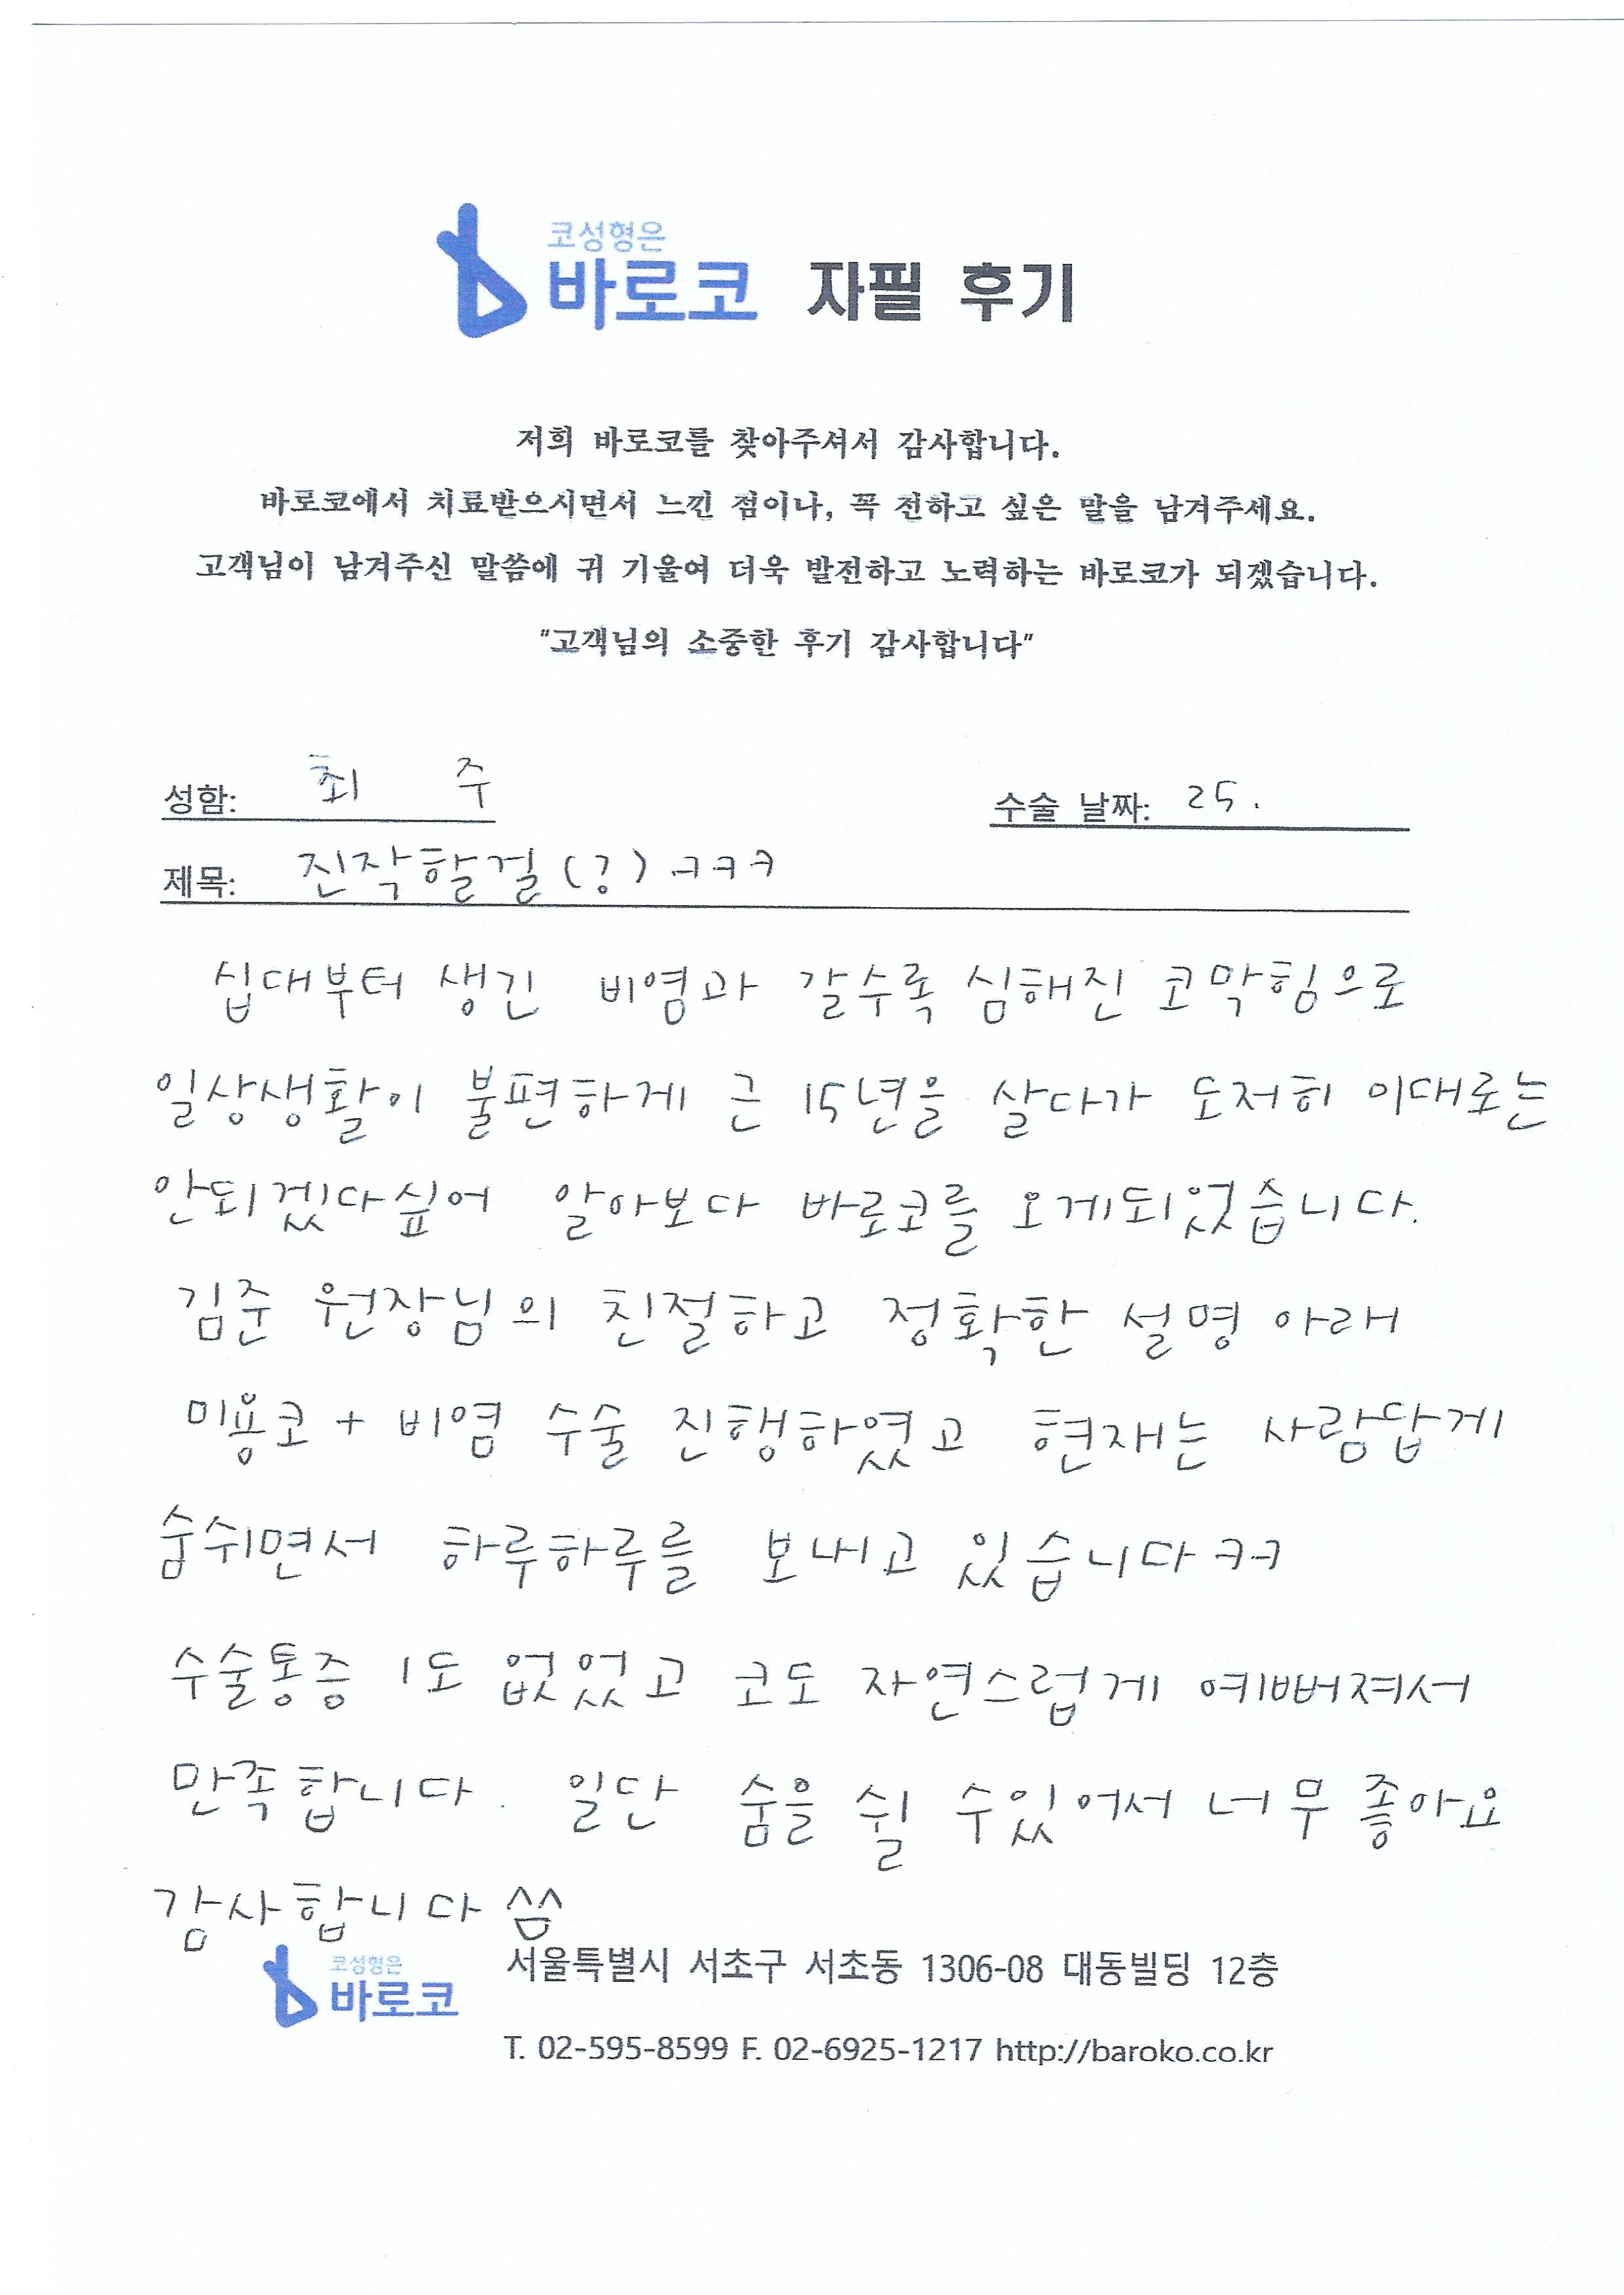 코성형은
바로코 자필 후기
저희 바로코를 찾아주셔서 감사합니다.
바로코에서 치료받으시면서 느낀 점이나, 꼭 전하고 싶은 말을 남겨주세요.
고객님이 남겨주신 말씀에 귀 기울여 더욱 발전하고 노력하는 바로코가 되겠습니다.
"고객님의 소중한 후기 감사합니다"
성함: 최 주 수술 날짜: 25.
제목: 진작할걸(?) ㅋㅋㅋ
십대부터 생긴 비염과 갈수록 심해진 코막힘으로
일상생활이 불편하게 근 15년을 살다가 도저히 이대로는
안되겠다싶어 알아보다 바로코를 오게되었습니다.
김준 원장님의 친절하고 정확한 설명 아래
미용코 + 비염 수술 진행하였고 현재는 사람답게
숨쉬면서 하루하루를 보내고 있습니다 ㅋㅋ
수술통증 1도 없었고 코도 자연스럽게 예뻐져서
만족합니다. 일단 숨을 쉴 수있어서 너무 좋아요
감사합니다 ^^
코성형은
바로코
서울특별시 서초구 서초동 1306-08 대동빌딩 12층
T. 02-595-8599 F. 02-6925-1217 http://baroko.co.kr